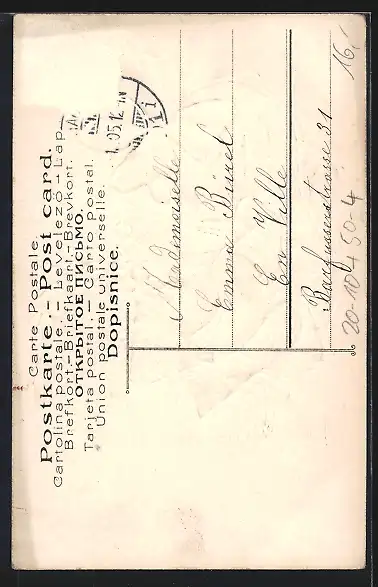 Carte Postale
Postkarte.-Post card.
Cartolina postale.— Levelező-Lap
Brefkort-Briefkaart.-Brevkort.
ОТКРЫТОЕ ПИСЬМО.
Tarjeta postal.— Carto postal.
Union postale universelle.
Dopisnice.
1.05.12
Mademoiselle
Emma
En Ville
31
16,-
20-10450-4